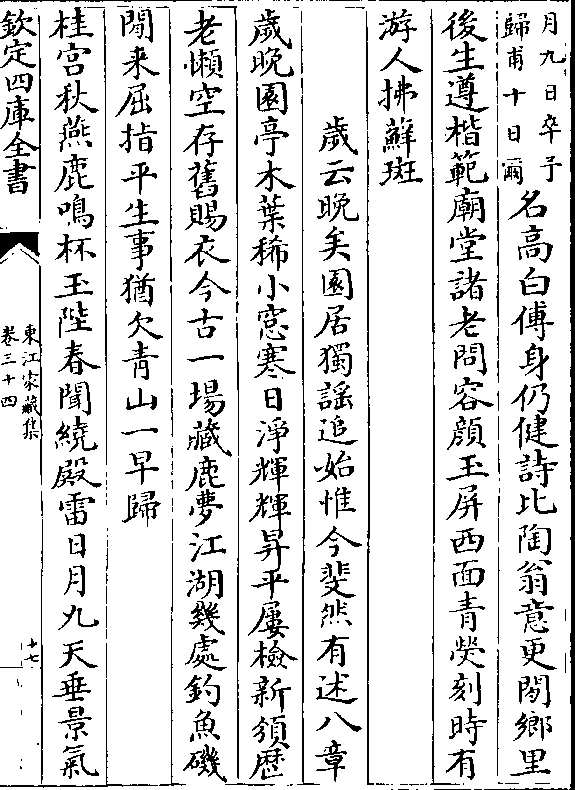 月九日卒予
歸甫十日爾
名高白傅身仍健詩比陶翁意更閑鄉里
後生遵楷範廟堂諸老問容顔玉屏西面青熒刻時有
游人拂蘚斑
歲云晚矣園居獨謡追始惟今斐然有述八章
歲晚園亭木葉稀小窓寒日淨輝輝昇平屢檢新頒歴
老懶空存舊賜衣今古一場藏鹿夢江湖幾處釣魚磯
閒来屈指平生事猶欠青山一早歸
桂宫秋燕鹿鳴杯玉陛春聞繞殿雷日月九天垂景氣
欽定四庫全書
東江家藏集
卷三十四
十七